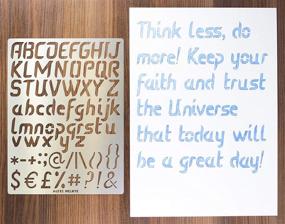 ABCDEFGHIJ
KLMNOPQRST
UVWXYZ
abcdefghijkl
mnopqrstu
vwxyz
*-+:;~()/|\(){}
$€£%#?!&
Think less, do
more! Keep your
faith and trust
the Universe
that today will
be a great day!